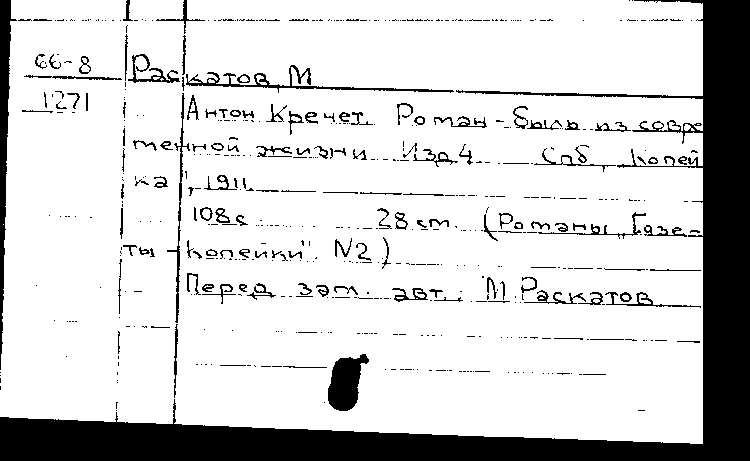 66-8 Раскатов, М
1271 Антон Кречет. Роман-быль из совре
менной жизни Изд 4 Спб, Копей
ка", 1911.
108с. 28 см. (Романы „Газе-
ты-Копейки". N2)
Перед заг. авт.: М. Раскатов